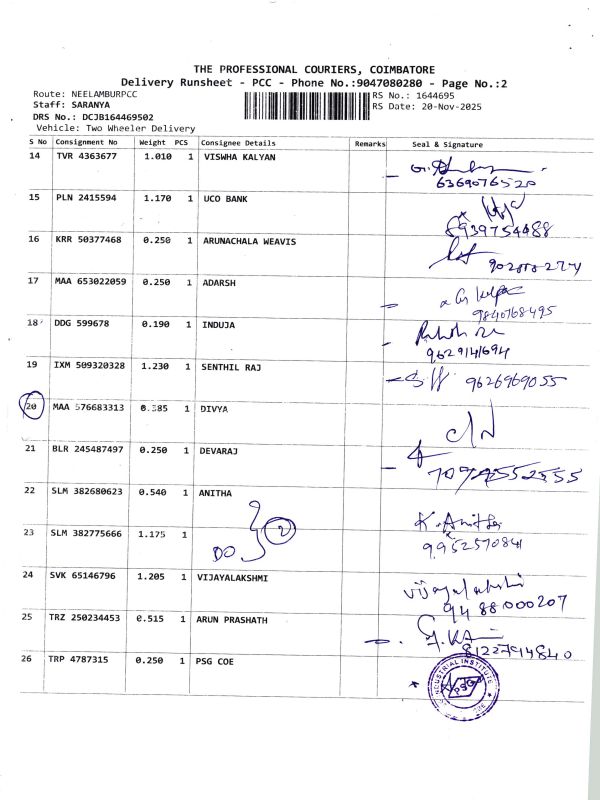 THE PROFESSIONAL COURIERS, COIMBATORE
Delivery Runsheet - PCC - Phone No.:9047080280 - Page No.:2
Route: NEELAMBURPCC
RS No.: 1644695
Staff: SARANYA
RS Date: 20-Nov-2025
DRS No.: DCJB164469502
Vehicle: Two Wheeler Delivery
S No Consignment No Weight PCS Consignee Details Remarks Seal & Signature
14 TVR 4363677 1.010 1 VISWHA KALYAN
6369076520
15 PLN 2415594 1.170 1 UCO BANK
8939754488
16 KRR 50377468 0.250 1 ARUNACHALA WEAVIS
17 MAA 653022059 0.250 1 ADARSH
9840768495
18 DDG 599678 0.190 1 INDUJA
9629141694
19 IXM 509320328 1.230 1 SENTHIL RAJ
9626969055
20 MAA 576683313 0.385 1 DIVYA
C/N
21 BLR 245487497 0.250 1 DEVARAJ
22 SLM 382680623 0.540 1 ANITHA
K. Anitha
23 SLM 382775666 1.175 1
DO 2
9952570841
24 SVK 65146796 1.205 1 VIJAYALAKSHMI
Vijayalakshmi
9488000207
25 TRZ 250234453 0.515 1 ARUN PRASHATH
8122794840
26 TRP 4787315 0.250 1 PSG COE
INDUSTRIAL INSTITUTE
PSG